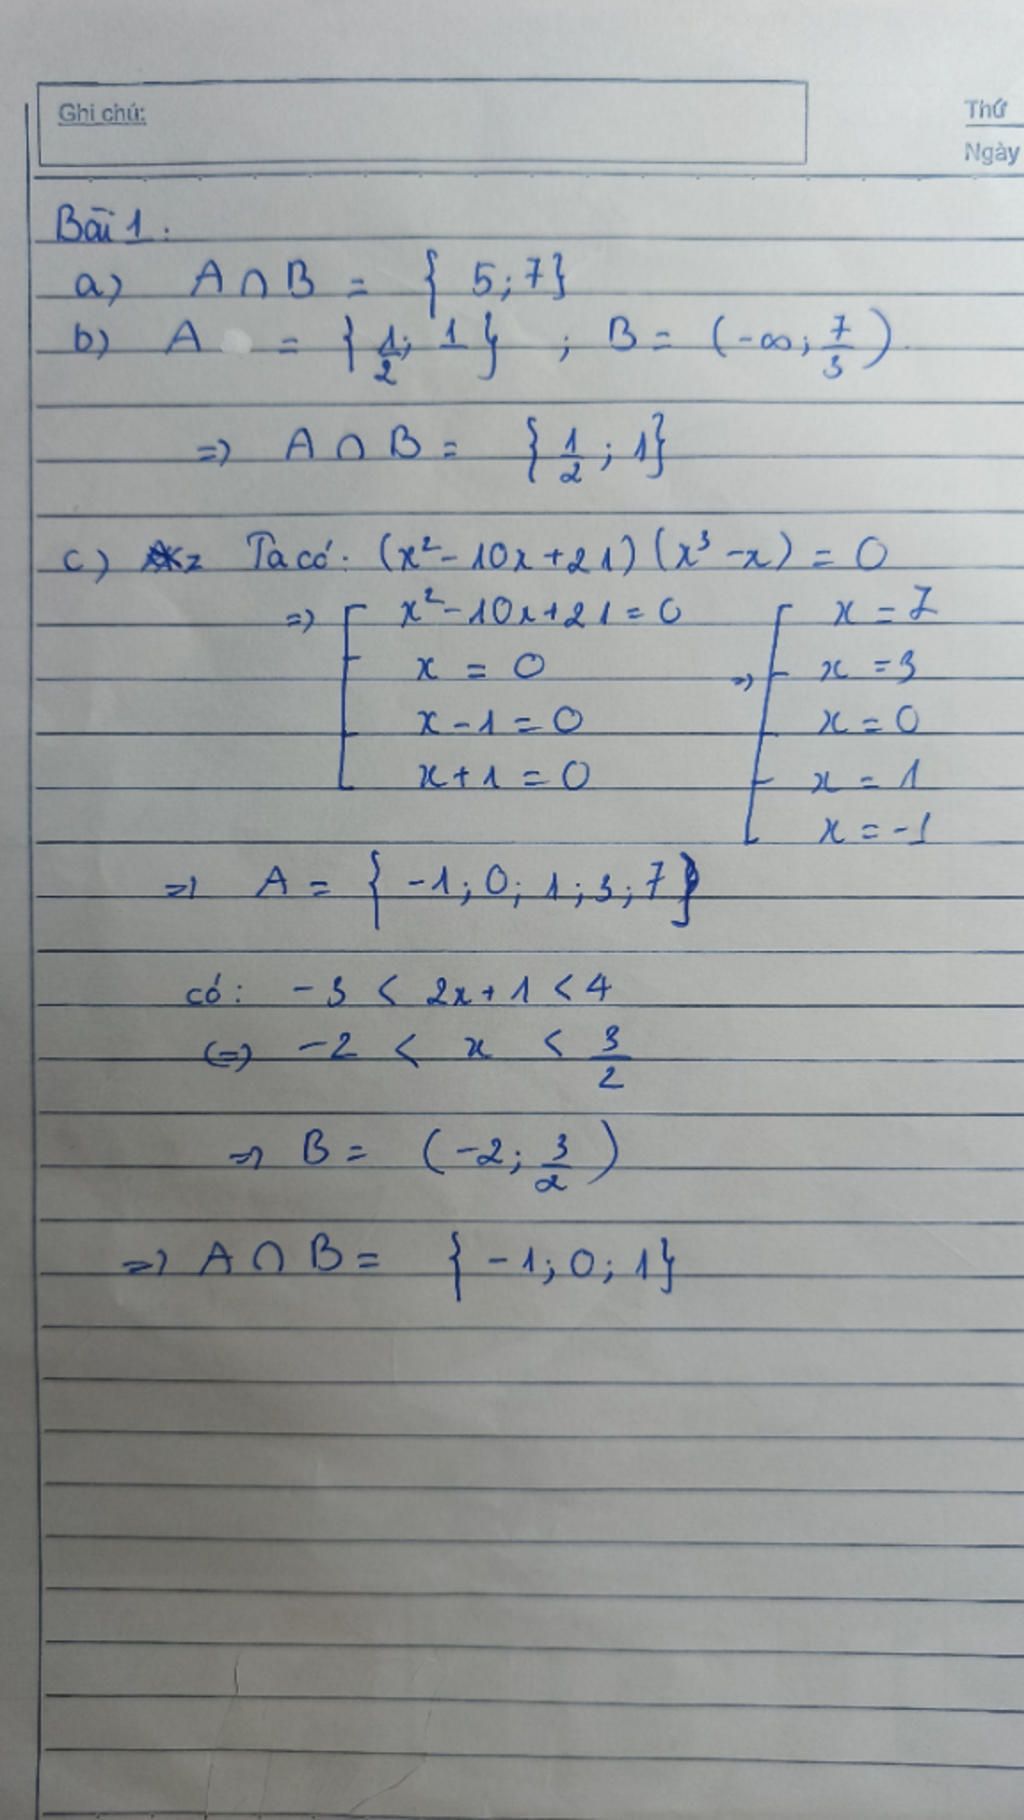 Ghi chú:
Thứ
Ngày
Bài 1:
a) A ∩ B = { 5; 7}
b) A = { 1/2; 1 } ; B = (-∞; 7/3).
=> A ∩ B = { 1/2 ; 1}
c) Ta có: (x² - 10x + 21) (x³ - x) = 0
=> [ x² - 10x + 21 = 0 => [ x = 7
x = 0 x = 3
x - 1 = 0 x = 0
x + 1 = 0 x = 1
x = -1
=> A = { -1; 0; 1; 3; 7}
có: -3 < 2x + 1 < 4
(=) -2 < x < 3/2
=> B = (-2; 3/2)
=> A ∩ B = { -1; 0; 1}